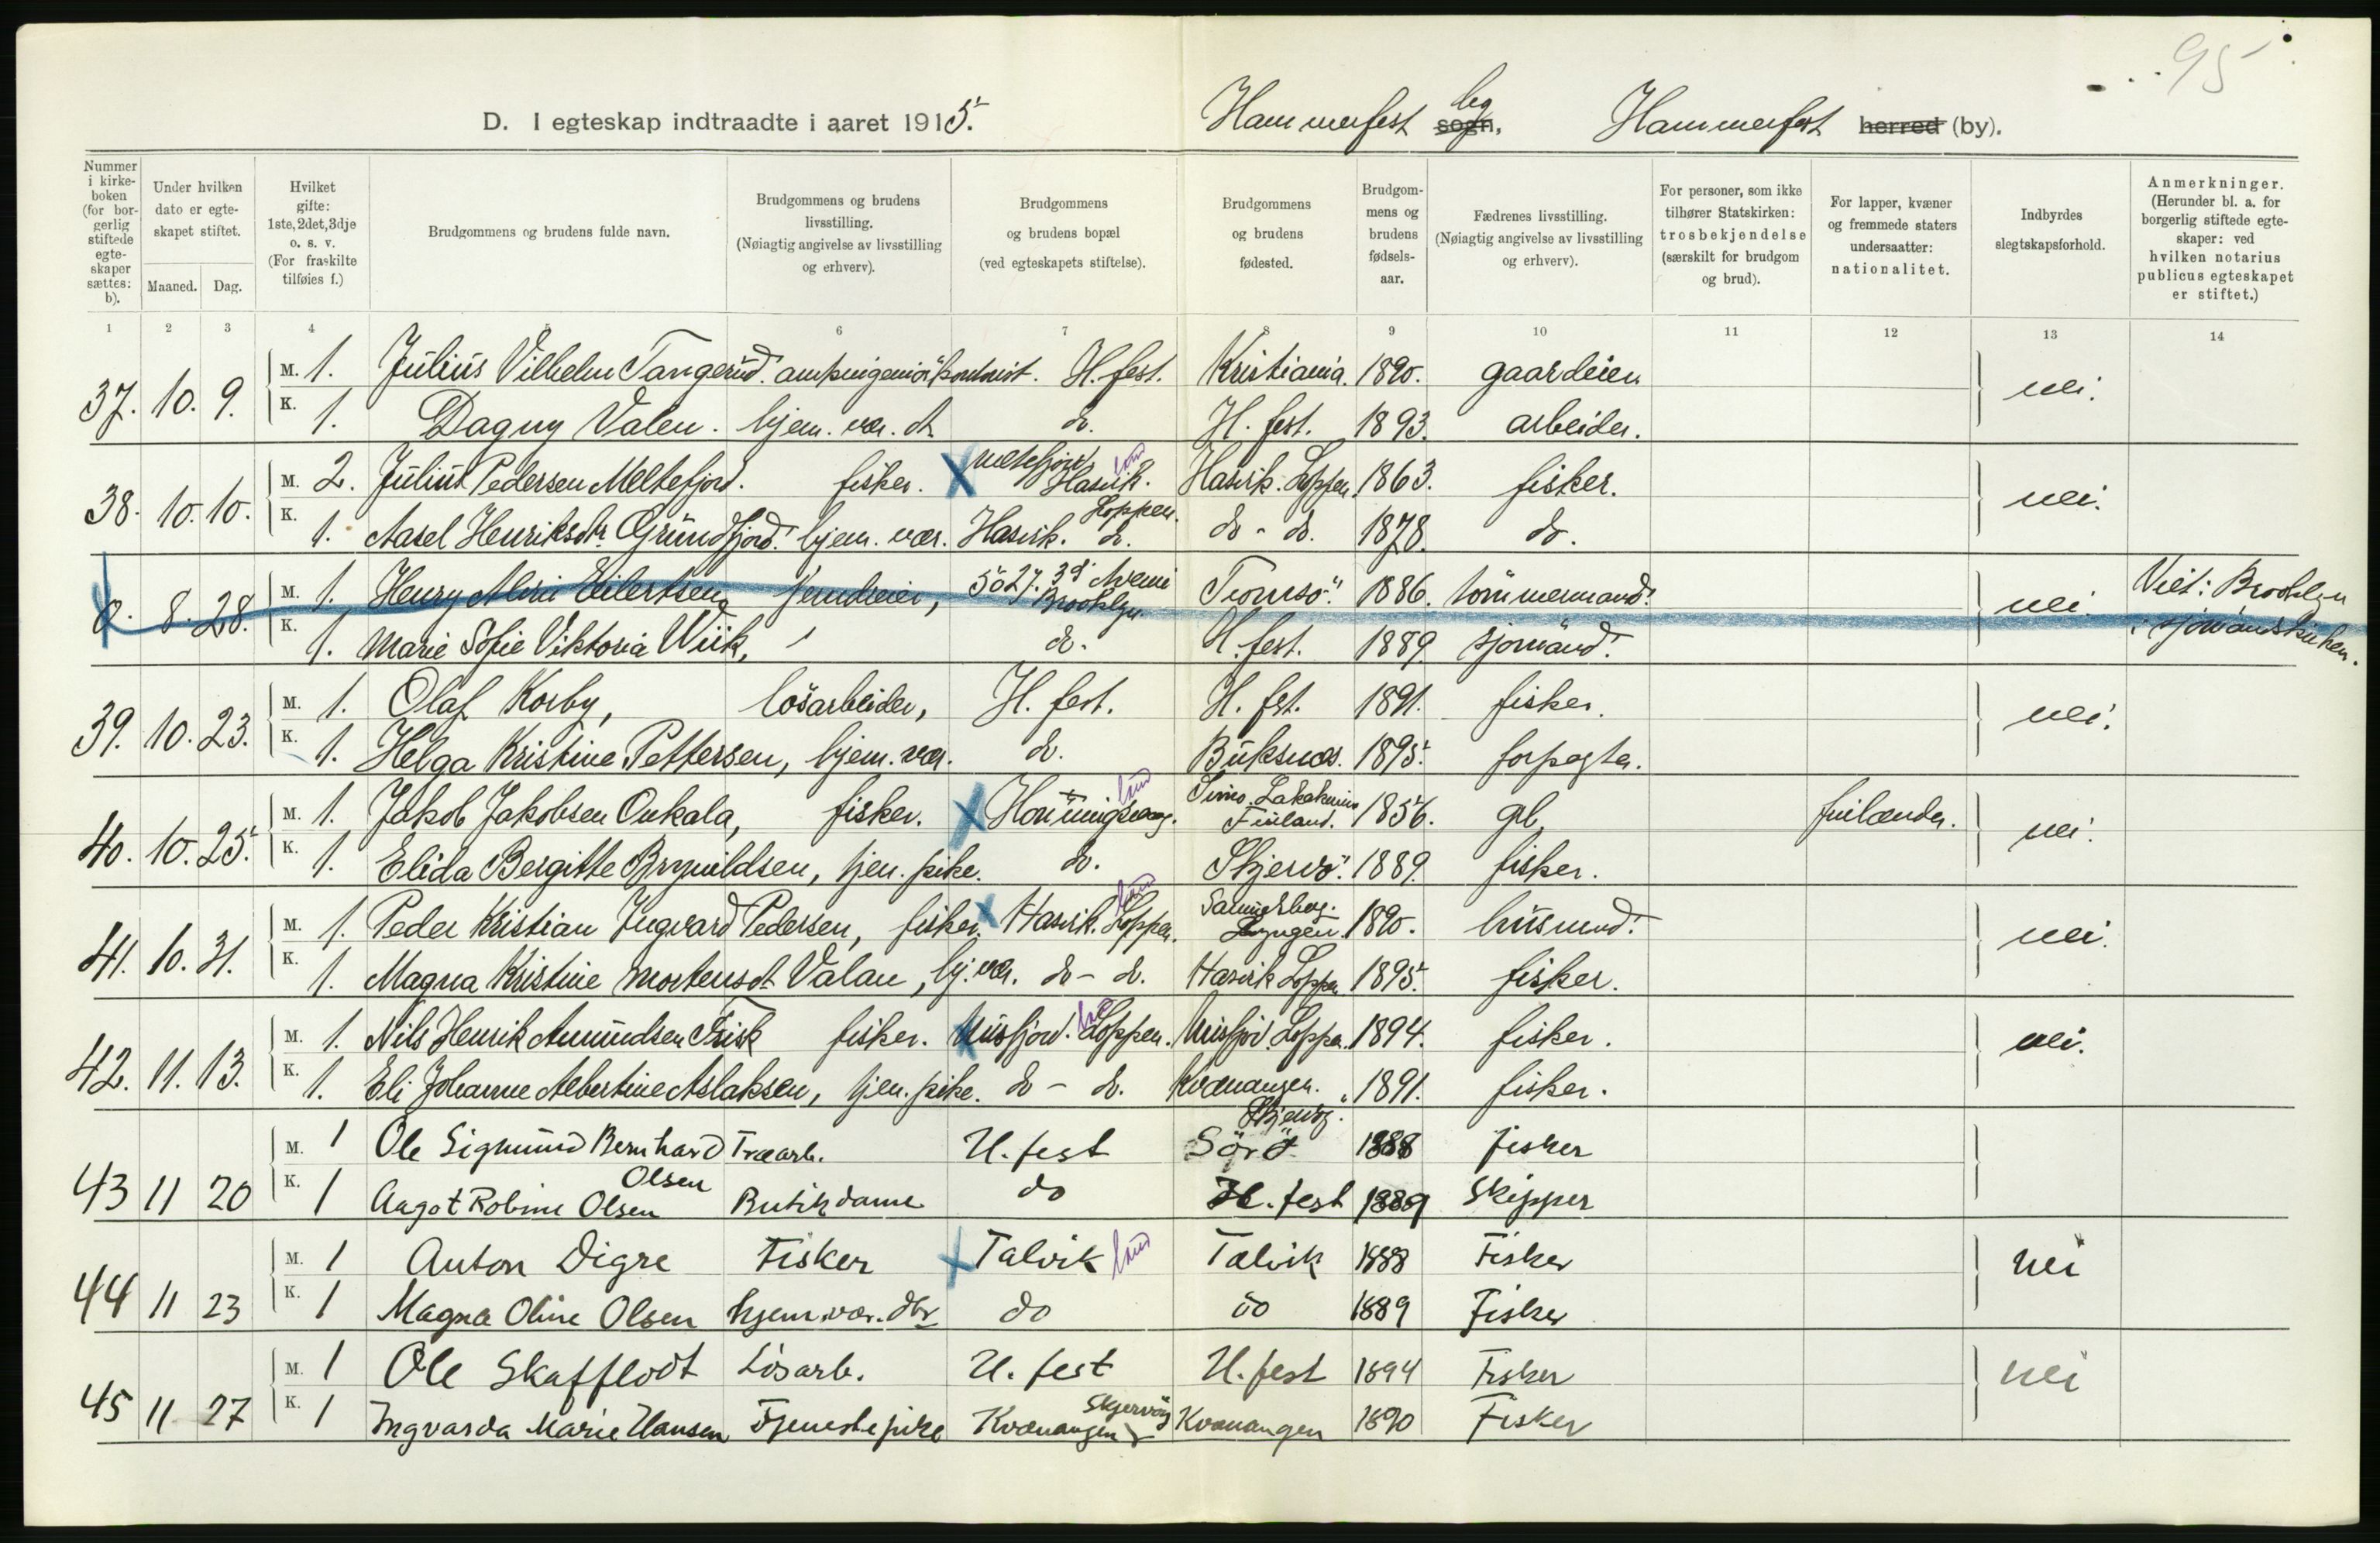 95
D. I egteskap indtraadte i aaret 1915. Hammerfest sogn, Hammerfest herred (by).
Nummer i kirkeboken (for borgerlig stiftede egteskaper sættes: b).
Under hvilken dato er egteskapet stiftet.
Maaned. Dag.
Hvilket gifte: 1ste, 2det, 3dje o. s. v. (For fraskilte tilføies f.)
Brudgommens og brudens fulde navn.
Brudgommens og brudens livsstilling. (Nøiagtig angivelse av livsstilling og erhverv).
Brudgommens og brudens bopæl (ved egteskapets stiftelse).
Brudgommens og brudens fødested.
Brudgommens og brudens fødselsaar.
Fædrenes livsstilling. (Nøiagtig angivelse av livsstilling og erhverv).
For personer, som ikke tilhører Statskirken: trosbekjendelse (særskilt for brudgom og brud).
For lapper, kvæner og fremmede staters undersaatter: nationalitet.
Indbyrdes slegtskapsforhold.
Anmerkninger. (Herunder bl. a. for borgerlig stiftede egteskaper: ved hvilken notarius publicus egteskapet er stiftet.)
1 2 3 4 5 6 7 8 9 10 11 12 13 14
37. 10. 9. M. 1. Julius Vilhelm Tangerud. H.fest. Kristiania. 1890. gaardeier nei.
K. 1. Dagny Valen. hjem. vær. dt. do. H. fest. 1893. arbeider.
38. 10. 10. M. 2. Julius Pedersen Meltefjord. fisker. Meltefjord Hasvik. Loppen. Hasvik. Loppen. 1863. fisker. nei.
K. 1. Aasel Henriksdtr. Grundfjord. hjem. vær. Hasvik. do. do - do. 1878. do.
0. 8. 28. M. 1. Henry Eilertsen 5027. 3d Aveni Brooklyn Tromsö. 1886. tömmermand. nei. Viet: Brooklyn i sjömandskirken.
K. 1. Marie Sofie Viktoria Wiik, do. H.fest. 1889. sjömand.
39. 10. 23. M. 1. Olaf Korby, lösarbeider, H. fest. H. fest. 1891. fisker. nei.
K. 1. Helga Kristine Pettersen, hjem. vær. do. Buksnes. 1895. forpagter.
40. 10. 25. M. 1. Jakob Jakobsen Onkala, fisker. Honningsvaag. Simo, Finland. 1856. gb. finlænder. nei.
K. 1. Elida Bergitte Brynildsen, tjen. pike. do. Skjervö. 1889. fisker.
41. 10. 31. M. 1. Peder Kristian Ingvard Pedersen, fisker. Hasvik. Loppen. Lyngen. 1890. husmand. nei.
K. 1. Magna Kristine Mortensdt Valan, hj. vær. do - do. Hasvik Loppen 1895. fisker.
42. 11. 13. M. 1. Nils Henrik Amundsen Frisk fisker. Nusfjord. Loppen. Nusfjord. Loppen. 1894. fisker. nei.
K. 1. Eli Johanne Albertine Aslaksen, tjen. pike. do - do. Kvænangen. Skjervøy. 1891. fisker.
43 11 20 M. 1 Ole Sigmund Bernhard Olsen Træarb. H. fest Sörö 1888 fisker
K. 1 Aagot Robine Olsen Butikdame do H. fest 1889 Skipper
44 11 23 M. 1 Anton Digre Fisker Talvik Talvik 1888 Fisker nei
K. 1 Magna Oline Olsen hjem. vær. dtr do do 1889 Fisker
45 11 27 M. 1 Ole Skafflodt Lösarb. H. fest H. fest 1894 Fisker nei
K. 1 Ingvarda Marie Hansen Tjenestepike Kvænangen Skjervöy Kvænangen 1890 Fisker